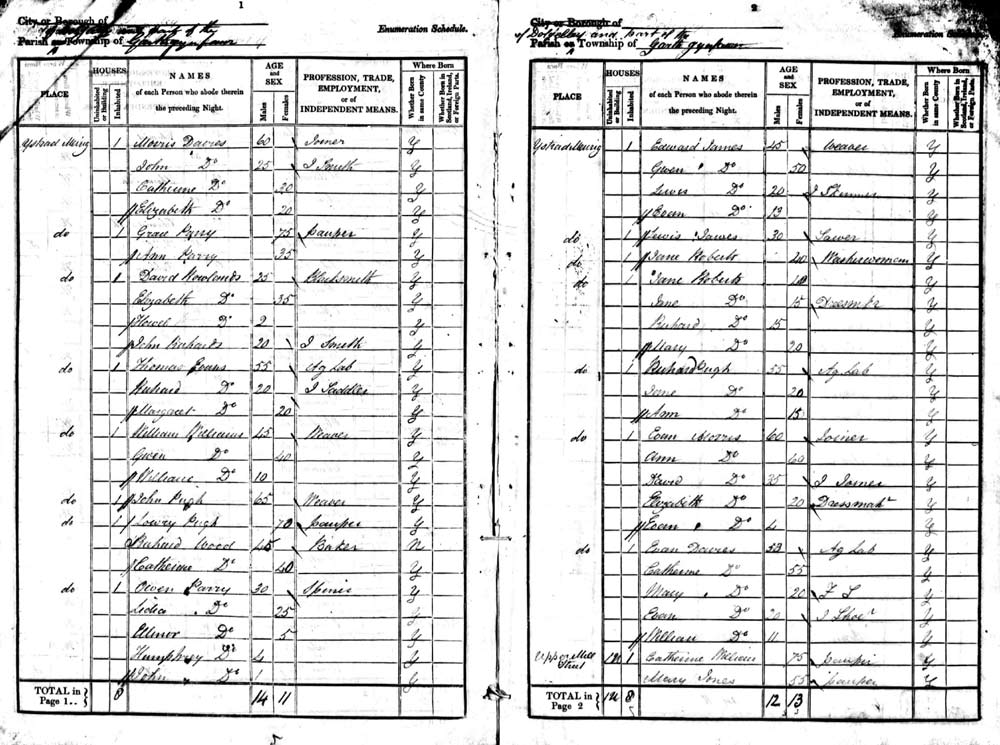 1
City or Borough of
Parish or Township of
Enumeration Schedule.
PLACE
HOUSES
Uninhabited or Building
Inhabited
NAMES
of each Person who abode therein the preceding Night.
AGE and SEX
Males
Females
PROFESSION, TRADE, EMPLOYMENT, or of INDEPENDENT MEANS.
Where Born
Whether Born in same County
Whether Born in Scotland, Ireland, or Foreign Parts.
1 Morris Davies 60 Joiner Y
John Do 25 J Smith Y
Catherine Do 20 Y
Elizabeth Do 20 Y
do 1 Grace Parry 75 Pauper Y
Ann Parry 35 Y
do 1 David Rowlands 25 Blacksmith Y
Elizabeth Do 35 Y
Howel Do 2 Y
John Richards 20 J Smith Y
do 1 Thomas Evans 55 Ag Lab Y
Richard Do 20 J Saddler Y
Margaret Do 20 Y
do 1 William Williams 45 Weaver Y
Gwen Do 40 Y
William Do 10 Y
do 1 John Pugh 65 Weaver Y
do 1 Lowry Pugh 70 Pauper Y
Richard Wood 45 Baker N
Catherine Do 40 Y
do 1 Owen Parry 30 Y
Lidia Do 25 Y
Ellinor Do 5 Y
Humphrey Do 4 Y
John Do 1 Y
TOTAL in Page 1.. 8 14 11
2
City or Borough of
of Dolgelley and part of the
Parish or Township of
Enumeration Schedule.
PLACE
HOUSES
Uninhabited or Building
Inhabited
NAMES
of each Person who abode therein the preceding Night.
AGE and SEX
Males
Females
PROFESSION, TRADE, EMPLOYMENT, or of INDEPENDENT MEANS.
Where Born
Whether Born in same County
Whether Born in Scotland, Ireland, or Foreign Parts.
1 Edward James 45 Weaver Y
Gwen Do 50 Y
Lewis Do 20 J Skinner Y
Evan Do 13 Y
do 1 Lewis James 30 Sawer Y
do 1 Jane Roberts 20 Washerwoman Y
do 1 Jane Roberts Y
Jane Do 15 Y
Richard Do 15 Y
Mary Do 20 Y
do 1 Richard Pugh 55 Ag Lab Y
Jane Do 20 Y
Ann Do 15 Y
do 1 Evan Morris 60 Joiner Y
Ann Do 60 Y
David Do 35 J Joiner Y
Elizabeth Do 20 Y
Evan Do 4 Y
do 1 Evan Davies Ag Lab Y
Catherine Do 55 Y
Mary Do 20 F S Y
Evan Do 20 Y
William Do 11 Y
Upper Mill Street 1 Catherine William 75 Pauper Y
Mary Jones 55 pauper Y
TOTAL in Page 2 8 12 13